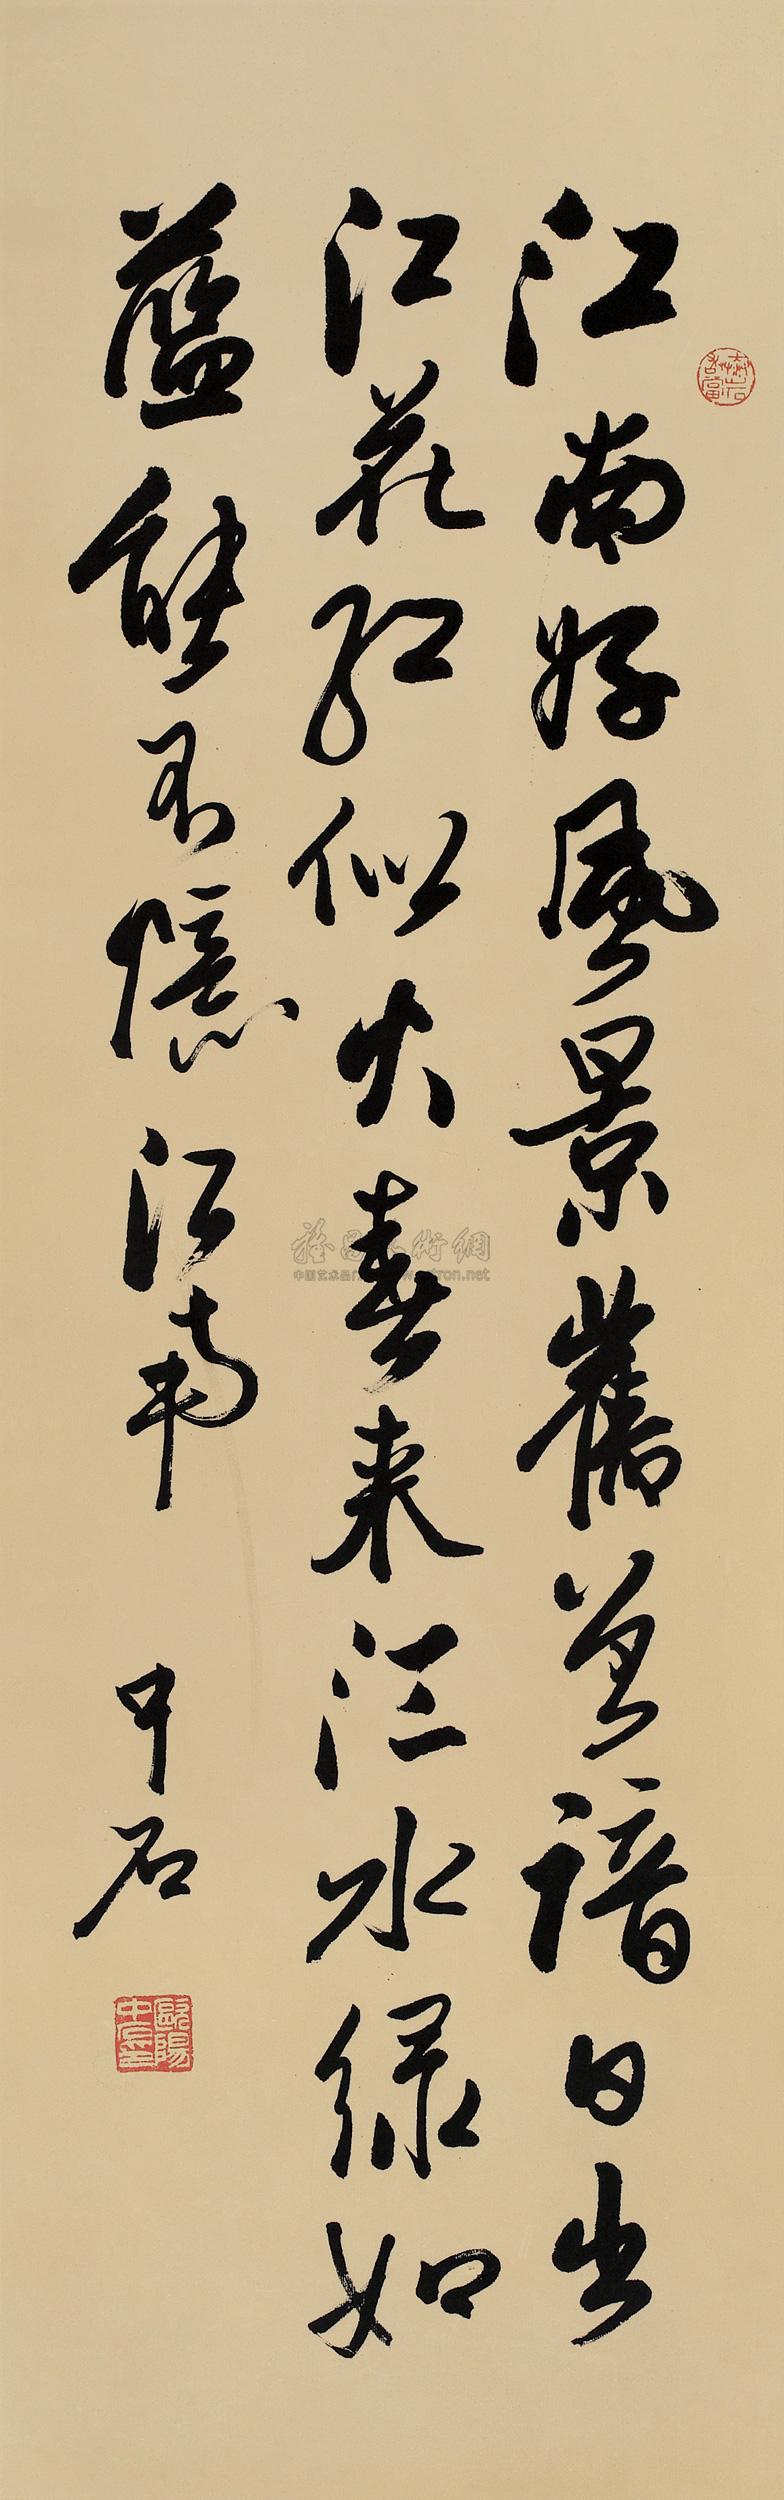 江南好風景舊曾諳日出
江花红似火春来江水绿如
藍能不憶江南
中石
歐陽中石
中国艺术品
tron.net